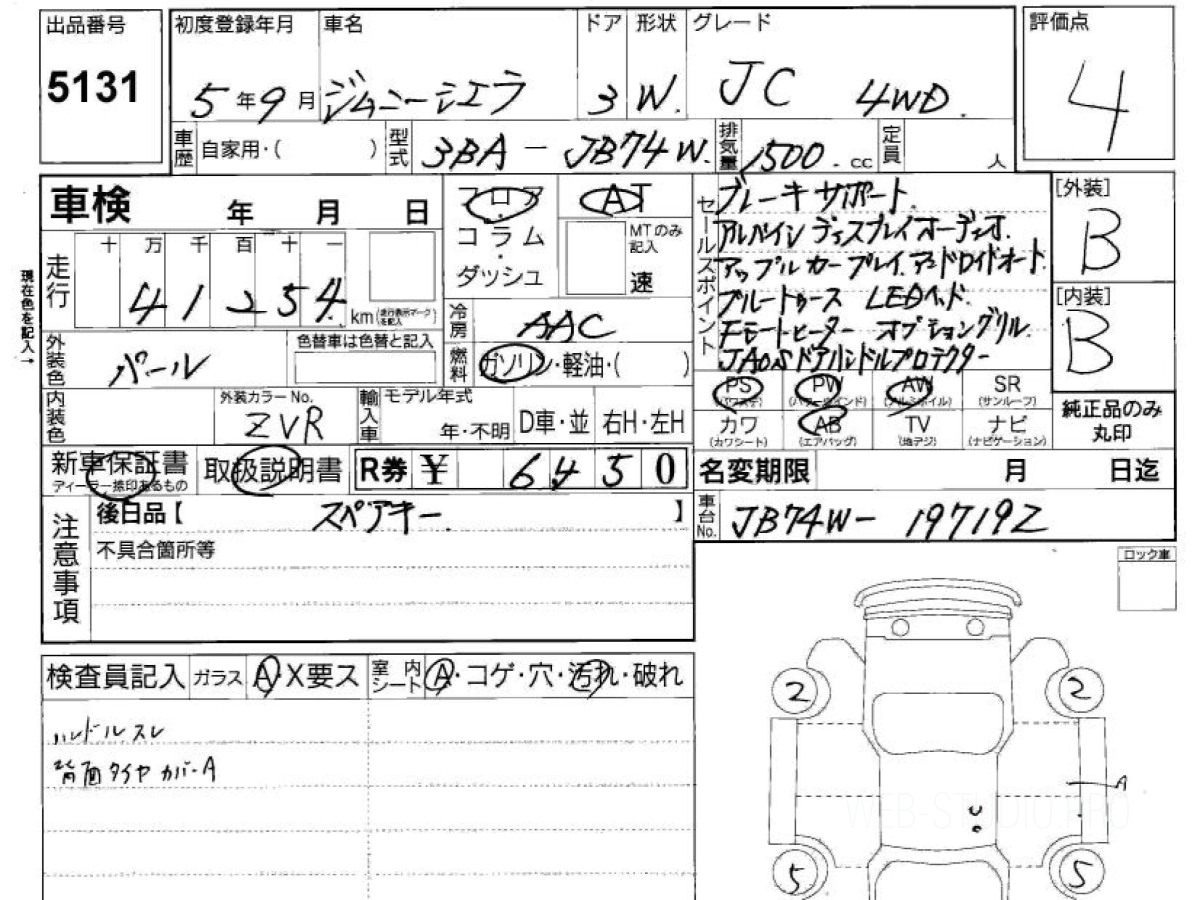 出品番号
5131
初度登録年月
5年9月
車名
ジムニーシエラ
ドア
3
形状
W.
グレード
JC 4WD.
評価点
4
車歴 自家用・( )
型式 3BA-JB74W.
排気量 1500.cc
定員 人
車検 年 月 日
現在色を記入→
走行
十 万 千 百 十 一
4 1 2 5 4. km (走行表示マークを記入)
フロア・コラム・ダッシュ
AT
MTのみ記入
速
冷房 AAC
燃料 ガソリン・軽油・( )
外装色 パール
色替車は色替と記入
内装色
外装カラーNo.
ZVR
輸入車
モデル年式
年・不明
D車・並
右H・左H
セールスポイント
ブレーキサポート.
アルパインディスプレイオーディオ.
アップルカープレイ.アンドロイドオート.
ブルートゥース LEDヘッド.
Fモートヒーター オプショングリル.
JAOSドアハンドルプロテクター
PS (パワステ)
PW (パワーウインド)
AW (アルミホイル)
SR (サンルーフ)
カワ (カワシート)
AB (エアバッグ)
TV (地デジ)
ナビ (ナビゲーション)
[外装]
B
[内装]
B
純正品のみ丸印
新車保証書
ディーラー捺印あるもの
取扱説明書
R券 ¥ 6450
名変期限 月 日迄
車台No. JB74W-197192
注意事項
後日品【 スペアキー. 】
不具合箇所等
ロック車
検査員記入
ガラス A・X要ス
室内シート A・コゲ・穴・汚れ・破れ
ハンドルスレ
背面タイヤカバーA
2
2
A
5
5
WEB-STUDIO PRO